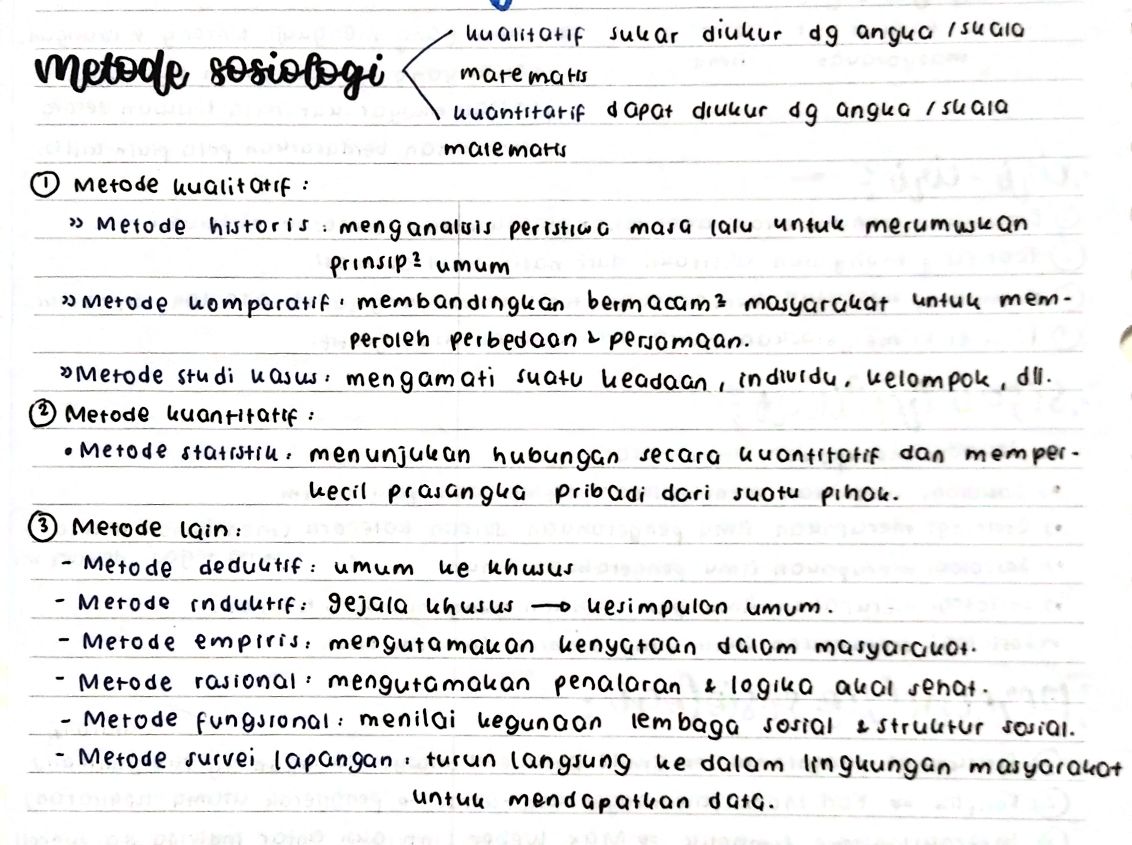 kualitatif sukar diukur dg angka / skala
metode sosiologi
matematis
kuantitatif dapat diukur dg angka / skala
matematis
① Metode kualitatif :
» Metode historis : menganalisis peristiwa masa lalu untuk merumuskan
prinsip² umum
» Metode komparatif : membandingkan bermacam² masyarakat untuk mem-
peroleh perbedaan & persamaan.
» Metode studi kasus : mengamati suatu keadaan, individu, kelompok, dll.
② Metode kuantitatif :
• Metode statistik : menunjukan hubungan secara kuantitatif dan memper-
kecil prasangka pribadi dari suatu pihak.
③ Metode lain :
- Metode deduktif : umum ke khusus
- Metode induktif : gejala khusus → kesimpulan umum.
- Metode empiris : mengutamakan kenyataan dalam masyarakat.
- Metode rasional : mengutamakan penalaran & logika akal sehat.
- Metode fungsional : menilai kegunaan lembaga sosial & struktur sosial.
- Metode survei lapangan : turun langsung ke dalam lingkungan masyarakat
untuk mendapatkan data.